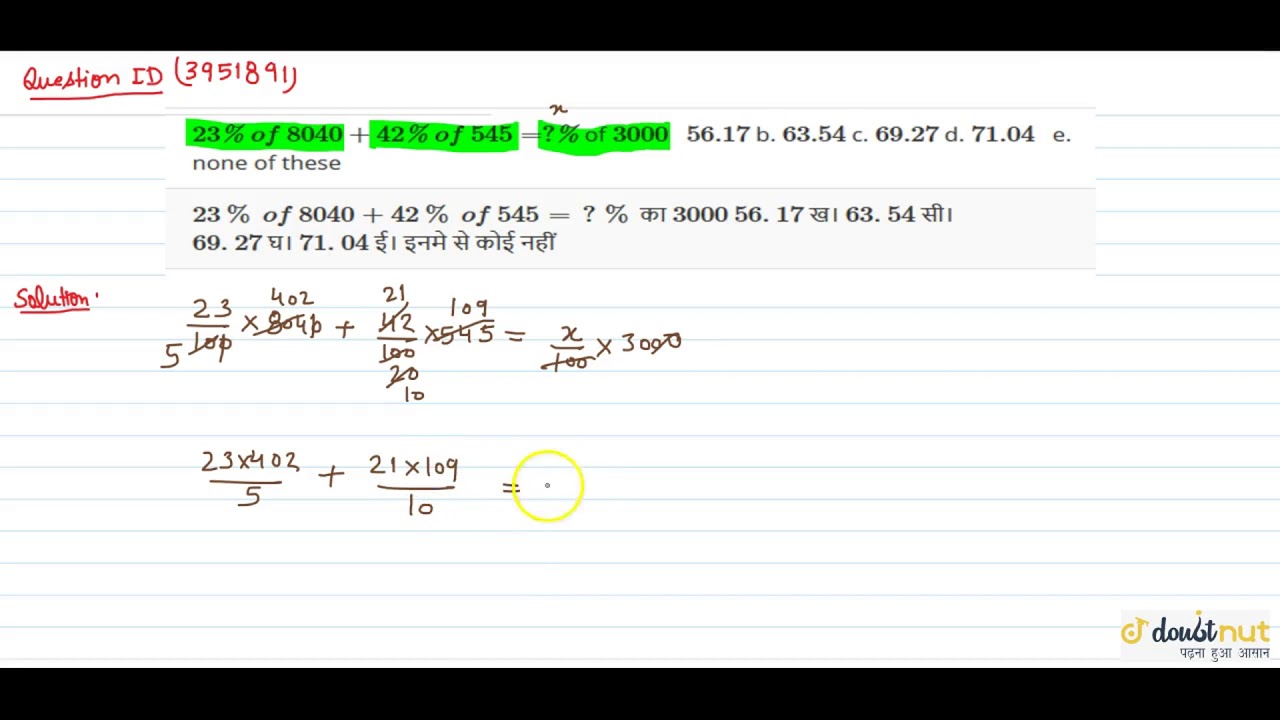 Question ID (3951891)
x
23% of 8040 + 42% of 545 =?% of 3000 56.17 b. 63.54 c. 69.27 d. 71.04 e.
none of these
23 % of 8040 + 42 % of 545 = ? % का 3000 56. 17 ख। 63. 54 सी।
69. 27 घ। 71. 04 ई। इनमे से कोई नहीं
Solution:
402 21 109
23 × 8040 + 42 × 545 = x × 3000
5 100 100 100
20
10
23×402 + 21×109 =
5 10
doubtnut
पढ़ना हुआ आसान